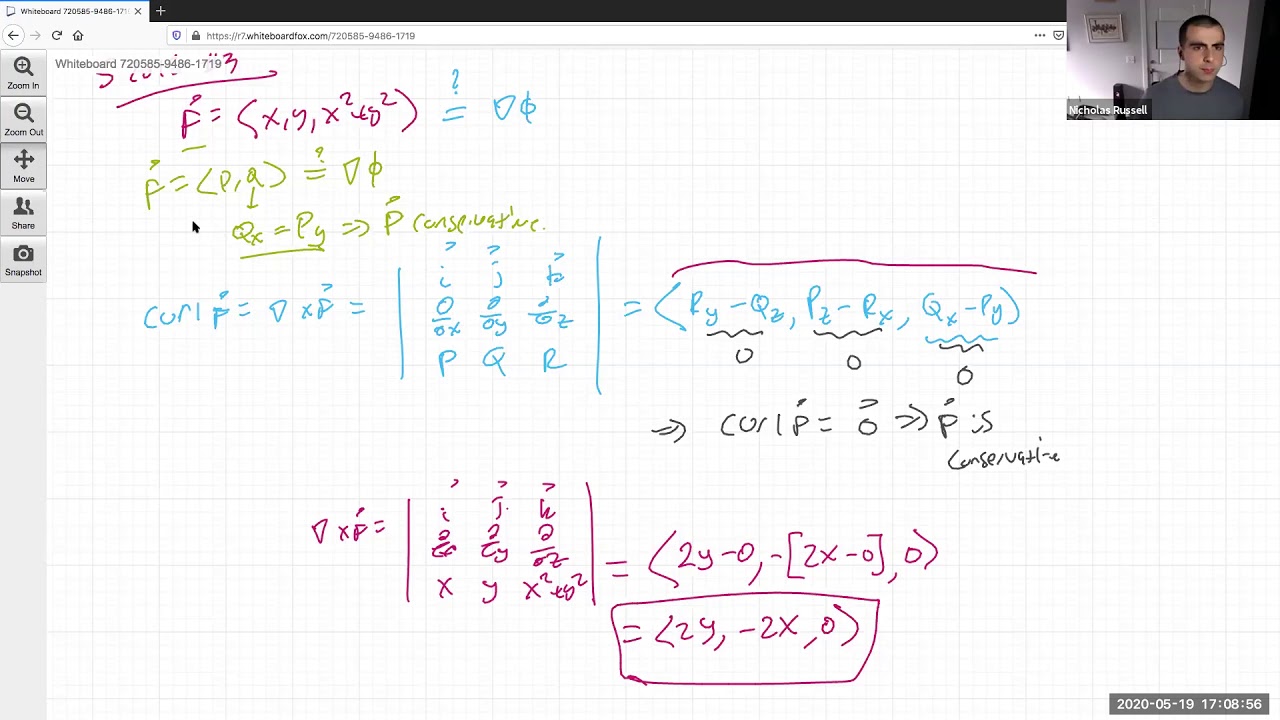 Whiteboard 720585-9486-171
https://r7.whiteboardfox.com/720585-9486-1719
Whiteboard 720585-9486-1719
Zoom In
Zoom Out
Move
Share
Snapshot
Nicholas Russell
#3
F⃗ = ⟨x, y, x²+y²⟩ ?= ∇φ
F⃗ = ⟨P, Q⟩ ?= ∇φ
Qx = Py ⇒ F⃗ conservative.
curl F⃗ = ∇ × F⃗ = | i⃗ j⃗ k⃗ | = ⟨Ry − Qz, Pz − Rx, Qx − Py⟩
∂/∂x ∂/∂y ∂/∂z
P Q R
0 0 0
⇒ curl F⃗ = 0⃗ ⇒ F⃗ is
conservative
∇ × F⃗ = | i⃗ j⃗ k⃗ |
∂/∂x ∂/∂y ∂/∂z
x y x²+y²
= ⟨2y−0, −[2x−0], 0⟩
= ⟨2y, −2x, 0⟩
2020-05-19 17:08:56